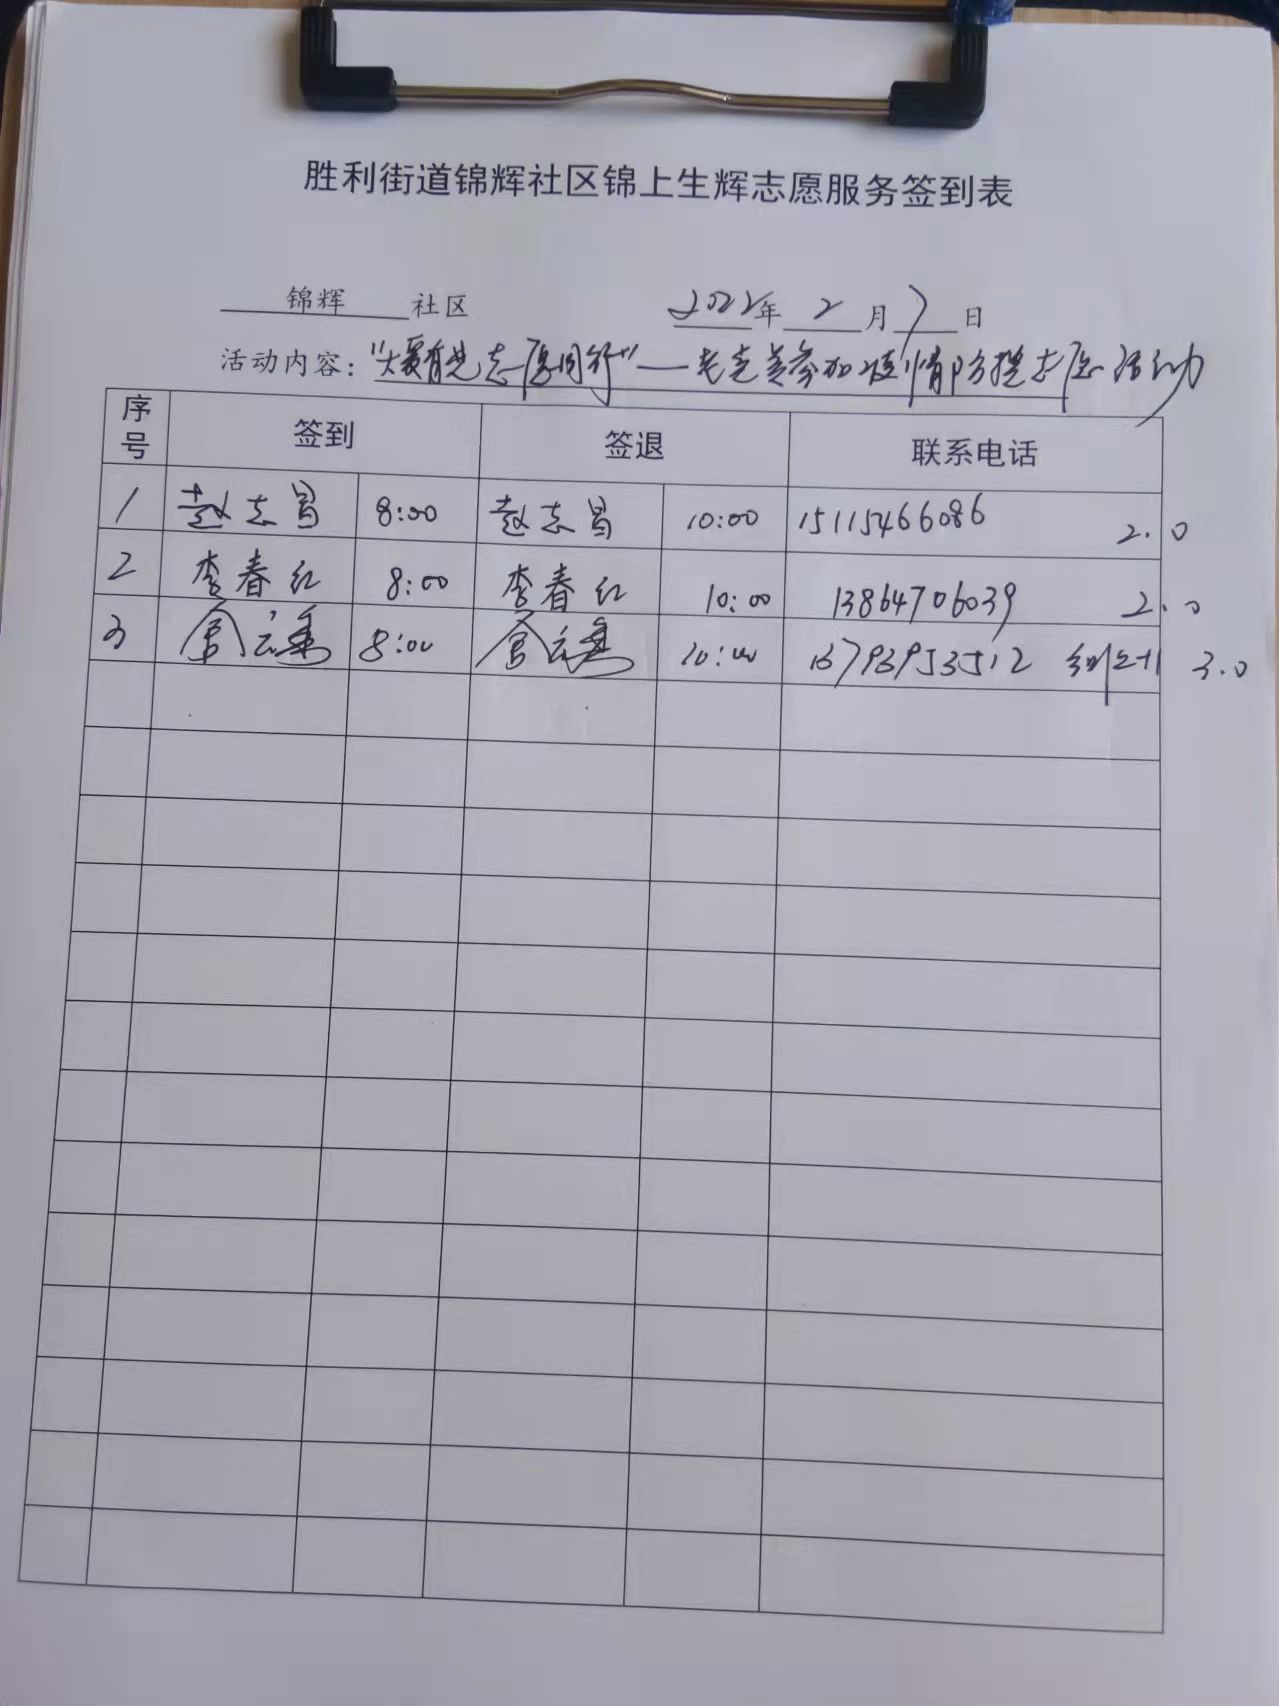 胜利街道锦辉社区锦上生辉志愿服务签到表
锦辉 社区 2022年 2 月 7 日
活动内容：“大爱有光志愿同行”——老党员参加疫情防控志愿活动
序号 签到 签退 联系电话
1 赵志昌 8:00 赵志昌 10:00 15115466086 2.0
2 李春红 8:00 李春红 10:00 13864706039 2.0
3 8:00 10:00 3.0